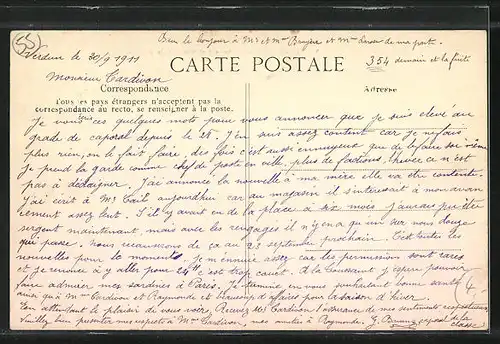 Bien le bonjour à Mr et Mme Bruyère et Mme de ma part.
Verdun le 30/9 1911
CARTE POSTALE
354 demain et la fuite
Monsieur Tardivon
Correspondance
Adresse
Tous les pays étrangers n'acceptent pas la
correspondance au recto, se renseigner à la poste.
Je vous écris ces quelques mots pour vous annoncer que je suis élevé au
grade de caporal depuis le 28. J'en suis assez content car je ne fais
plus rien, on le fait faire, des fois c'est aussi ennuyeux que de le faire soi même
Je prend la garde comme chef de poste en ville, plus de factions, l'hiver ce n'est
pas à dédaigner. J'ai annoncé la nouvelle à ma mère elle va être contente.
J'ai écrit à Mr aujourd'hui car au magasin il s'intéressait à mon avan
cement assez haut. S'il y avait eu de la place à six mois j'aurais peut être
sergent maintenant, mais avec les rengagés il n'y en a qu'un sur nous douze
qui passe. Nous recauserons de ça au 28 septembre prochain. C'est toutes les
nouvelles pour le moment. Je m'ennuie assez car les permissions sont rares
et je renonce à y aller pour 24h c'est trop court. A la Toussaint j'espère pouvoir
faire admirer mes sardines à Paris. Je termine en vous souhaitant bonne santé
ainsi qu'à Mme Tardivon et Raymonde et beaucoup d'affaires pour la saison d'hiver.
En attendant le plaisir de vous voir, Recevez Mr Tardivon l'assurance de mes sentiments respectueux
Veuillez bien présenter mes respects à Mme Tardivon, mes amitiés à Raymonde. G. de la
classe
4